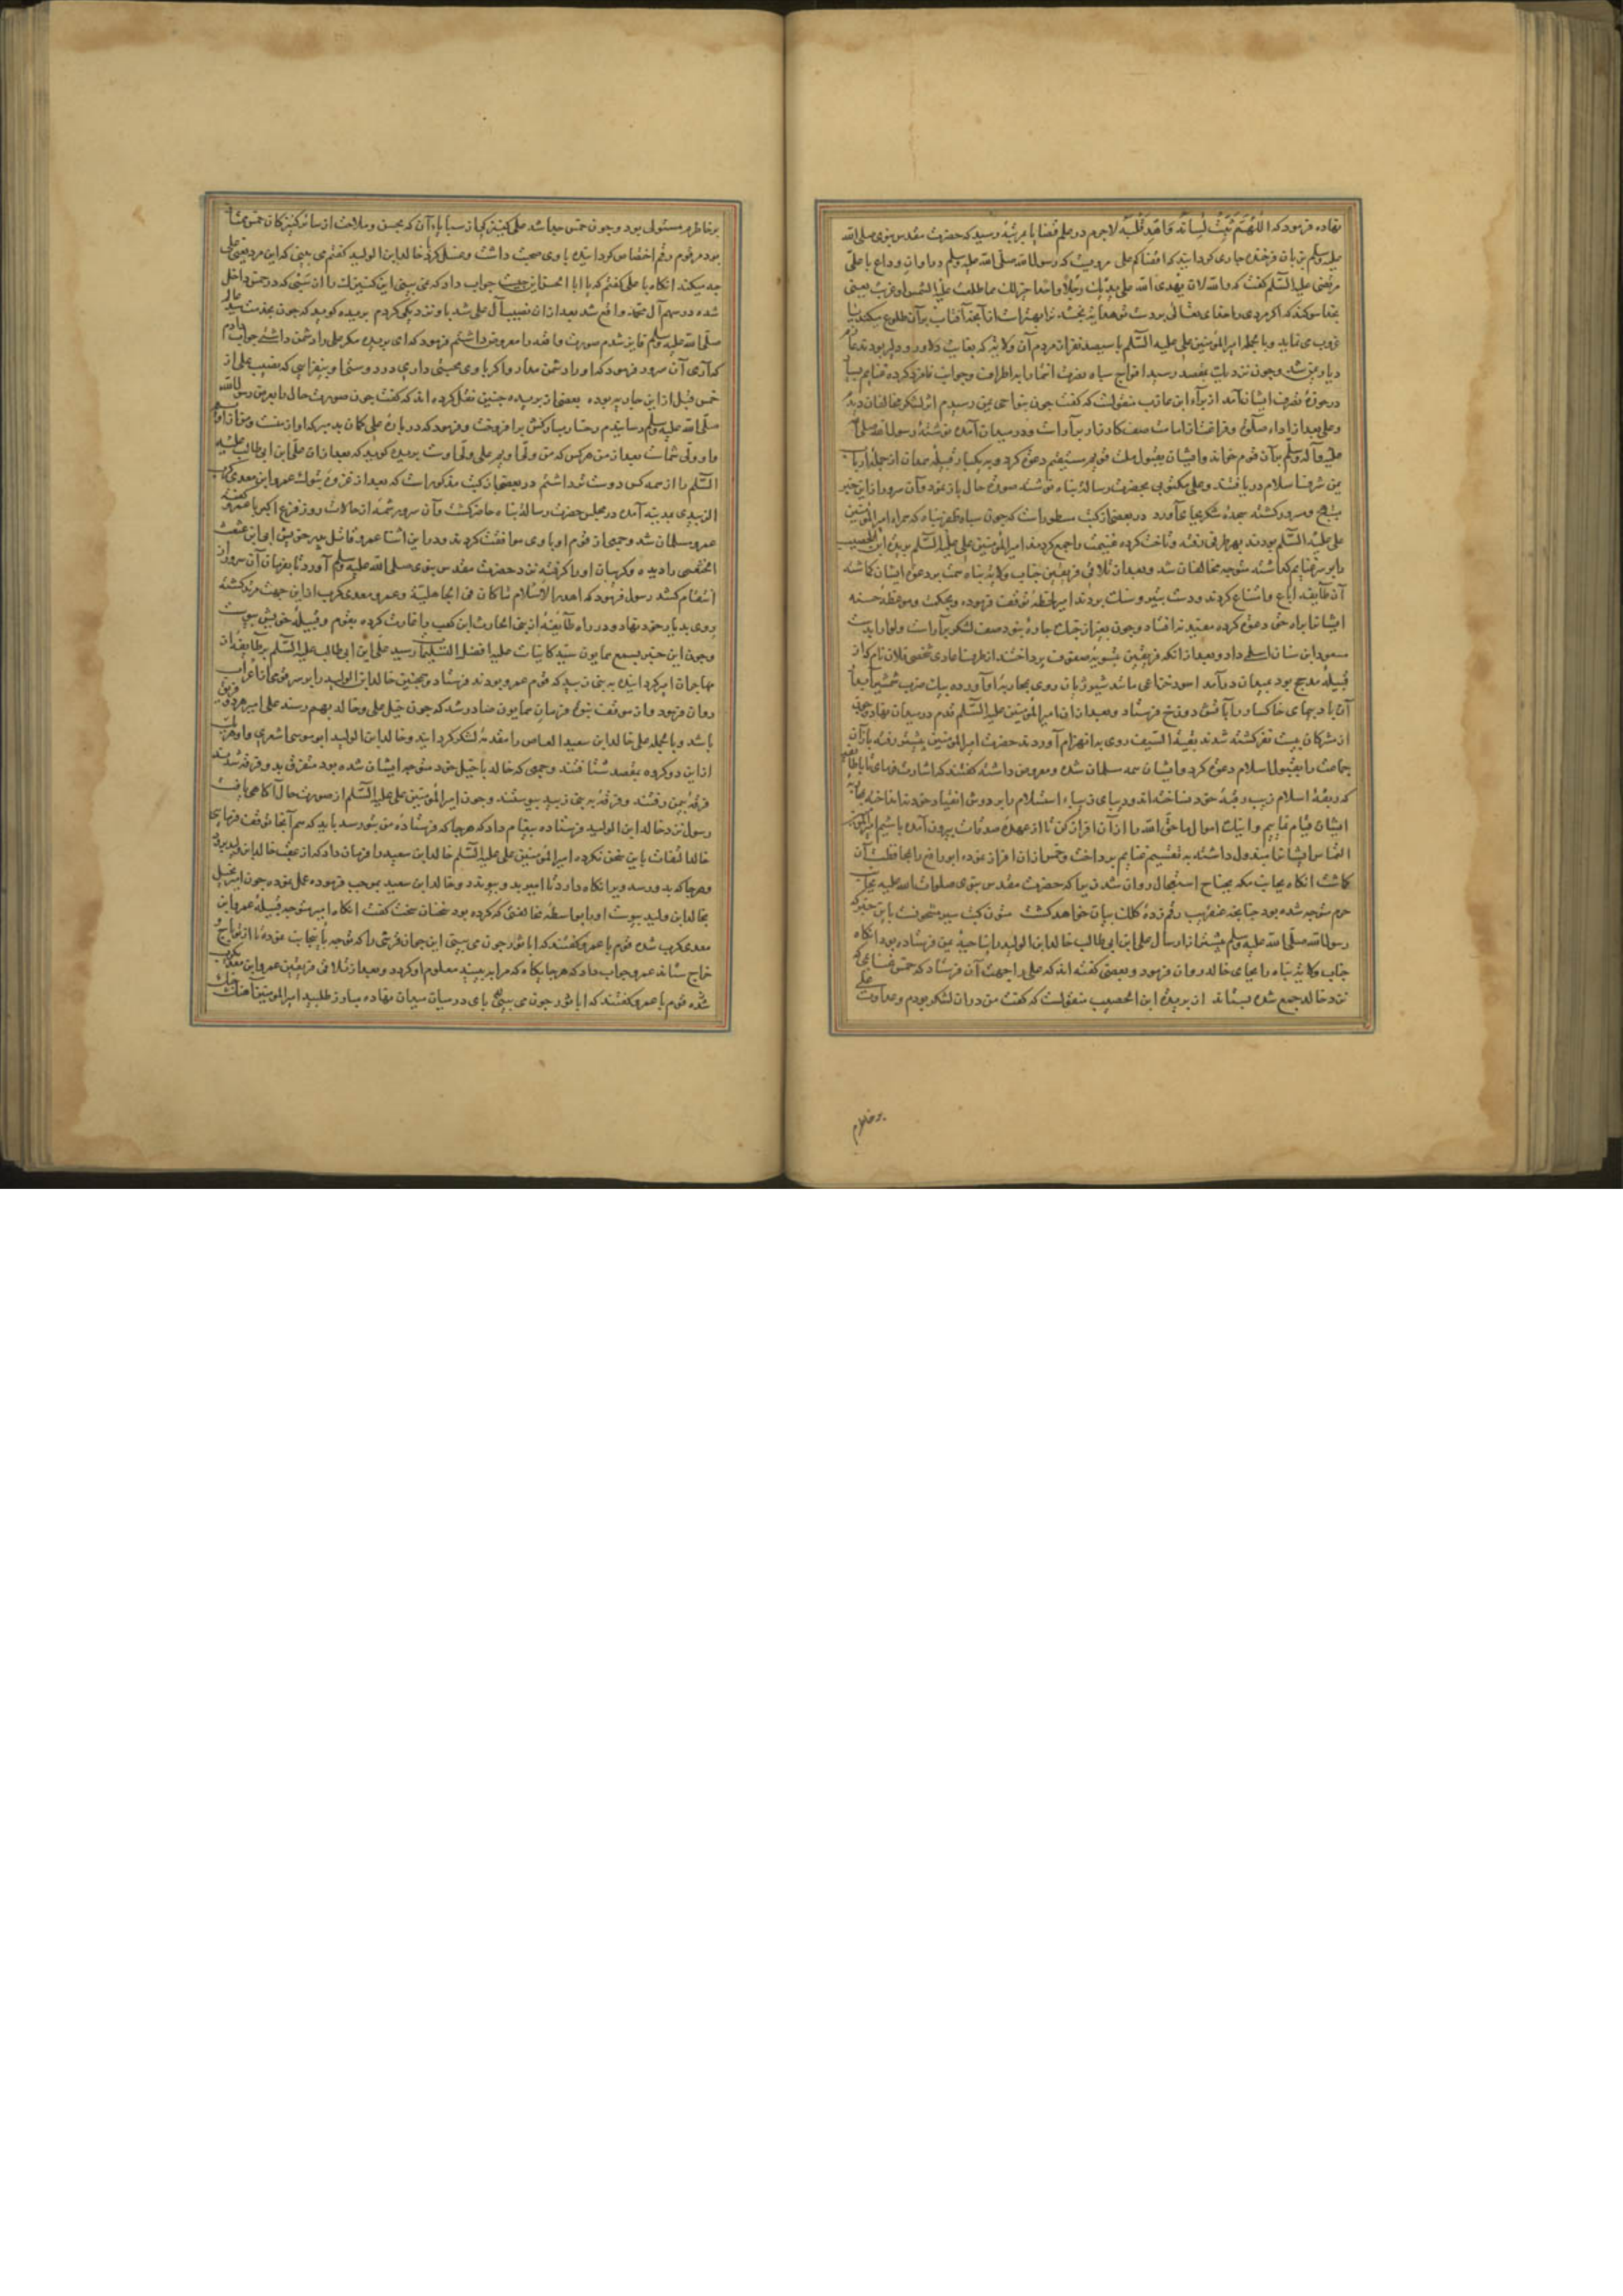 نهاده فرمود که اللهم ثبت لسانه واهد قلبه لاجرم در علم قضایا بمرتبه رسید که حضرت مقدس نبوی صلی الله
علیه وسلم بزبان فرخنده جاری کردانید که اقضاکم علی مرویست که رسول الله صلی الله علیه وسلم در اوان وداع با علی
مرتضی علیه السلم کفت که والله لان یهدی الله علی یدیک رجلا واحدا خیر لک مما طلعت علیه الشمس او غربت یعنی
بخدا سوکند که اکر مردی را خدای تعالی بر دست تو هدایت بخشد ترا بهتر است از آنجه آفتاب بر آن طلوع میکند یا
غروب می نماید وبالجمله امیر المؤمنین علی علیه السلم با سیصد نفر از مردم آن ولایت که بغایت دلاور و دلیر بودند عازم
دیار یمن شد وجون نزدیک بمقصد رسید افواج سپاه نصرت انتما را بر اطراف وجوانب نامزد کرده غنایم بسیار
در حوزه تصرف ایشان آمد از براء ابن عازب منقولست که کفت جون بنواحی یمن رسیدیم اثر لشکر مخالفان دید
وعلی بعد از اداء صلوة وفراغت از امامت صف کارزار بر آراست ودر میدان آمده نوشته رسول الله صلی الله
علیه وآله وسلم بر آن قوم خواند وایشان بقبول ملت قویم مستقیم دعوت کرد وبه یکبار قبیله همدان از جمله ارباب
یمن شرف اسلام دریافتند وعلی مکتوبی بحضرت رسالت پناه نوشته صورت حال باز نمود وآن سرور از این خبر
مبتهج ومسرور کشته سجده شکر بجای آورد در بعضی از کتب مسطور است که جون سپاه ظفر پناه که همراه امیر المؤمنین
علی علیه السلم بودند بهر طرفی رفته وتاخت کرده غنیمت را جمع کردند امیر المؤمنین علی علیه السلم بریده ابن الحصیب
را بر سر غنایم کماشته متوجه مخالفان شد وبعد از تلاقی فریقین جناب ولایت پناه همت بر دعوت ایشان کماشته
آن طایفه اباع وامتناع کردند ودست بتیر وسنک بردند امیر لحظه توقف فرموده وبحکمت وموعظه حسنه
ایشان را براه حق دعوت کرده مفید نیفتاد وجون بغیر از جنک جاره نبود صف لشکر بیاراست ولوا را بدست
مسعود ابن سنان اسلمی داد وبعد از آنکه فریقین بتسویه صفوف پرداختند از طرف اعادی شخصی فلان نام که از
قبیله مذحج بود بمیدان در آمد اسود خزاعی مانند شیر ژیان روی بمحاربه او آورده بیک ضرب شمشیر آبدار
آن باد پیمای خاکسار را بآتش دوزخ فرستاد وبعد از آن امیر المؤمنین علیه السلم قدم در میدان نهاد وجون
از مشرکان بیست نفر کشته شدند بقیة السیف روی بانهزام آوردند حضرت امیر المؤمنین پیشتر رفته باز آن
جماعت را بقبول اسلام دعوت کرد وایشان همه مسلمان شده ومعروض داشته کفتند که
که ربقه اسلام زیب رقبه خود ساخته اند وردای زیبای استسلام را بر دوش انقیاد خود انداخته
ایشان قیام نماییم واینک اموال ما حق الله را از آن افراز کن تا از عهده صدقات بیرون آمده باشیم امیر المؤمنین
التماس ایشان را مبذول داشته به تقسیم غنایم پرداخت وخمس از آن افراز نموده ابو رافع را بمحافظت آن
کماشت آنکاه بجانب مکه بجناح استعجال روان شد زیرا که حضرت مقدس نبوی صلوات الله علیه بجانب
حرم متوجه شده بود چنانچه عنقریب رقم زده کلک بیان خواهد کشت متون کتب سیر مشحونست باین خبر که
رسول الله صلی الله علیه وسلم پیشتر از ارسال علی ابن ابی طالب خالد ابن الولید را بناحیه یمن فرستاده بود آنکاه
جناب ولایت پناه را بجای خالد روان فرمود وبعضی کفته اند که علی را جهت آن فرستاد که خمس غنایمی که
نزد خالد جمع شده بستاند از بریده ابن الحصیب منقولست که کفت من در آن لشکر بودم وعداوت علی
بر خاطرم
بر خاطرم مستولی بود وجون خمس جدا شد علی کنیزکی از سبایاء آن که بحسن وملاحت از سایر کنیزکان خمس ممتاز
بود مرقوم رقم اختصاص کردانیده با وی صحبت داشت وغسل کرد با خالد ابن الولید کفتم می بینی که این مرد یعنی علی
چه میکند آنکاه با علی کفتم که یا ابا الحسن این جیست جواب داد که نمی بینی این کنیزک را از سبی که در خمس داخل
شده در سهم آل محمد واقع شد بعد از آن نصیب آل علی شد با او نزدیکی کردم بریده کوید که جون بخدمت سید عالم
صلی الله علیه وسلم فایز شدم صورت واقعه را معروض داشتم فرمود که ای بریده مکر علی را دشمن داشتی جواب دادم
که آری آن سرور فرمود که او را دشمن مدار واکر با وی محبتی داری در دوستی او بیفزای که نصیب علی از
خمس قبل از این جاریه بوده بعضی از بریده جنین نقل کرده اند که کفت جون صورت حال را بعرض رسول الله
صلی الله علیه وسلم رسانیدم رخسار مبارکش برافروخت وفرمود که در باره علی کمان بد مبر که او از منست ومن از او
ما وولی شماست بعد از من هر کس که من ولی اویم علی ولی اوست بریده کوید که بعد از آن علی ابن ابی طالب علیه
السلم را از همه کس دوست تر داشتم در بعضی از کتب مذکور است که بعد از غزوه تبوک عمرو ابن معدی کرب
الزبیدی بمدینه آمده در مجلس حضرت رسالت پناه حاضر کشت وآن سرور شمه از حالات روز فزع اکبر با عمرو کفته
عمرو مسلمان شد وجمعی از قوم او با وی موافقت کردند ودر این اثنا عمرو قاتل پدر خویش ابی ابن عثعث
الخثعمی را دیده وکریبان او را کرفته نزد حضرت مقدس نبوی صلی الله علیه وسلم آورد تا بفرمان آن سرور از
انتقام کشد رسول فرمود که اهدر الاسلام ما کان فی الجاهلیة وعمرو معدی کرب از این جهت مرتد کشته
روی بدیار خود نهاد ودر راه طایفه از بنی الحارث ابن کعب را غارت کرده بقوم وقبیله خویش پیوست
وجون این خبر بسمع همایون سید کاینات علیه افضل التسلیمات رسید علی ابن ابی طالب علیه السلم بر طایفه از
مهاجران امیر کردانیده به بنی زبید که قوم عمرو بودند فرستاد وهمچنین خالد ابن الولید را بر سر فرقه از اعراب
روان فرمود واز موقف نبوت فرمان همایون صادر شد که جون خیل علی وخالد بهم رسند علی امیر هر دو فریق
باشد وبالجمله علی خالد ابن سعید العاص را مقدمه لشکر کردانید وخالد ابن الولید ابو موسی اشعری را
از این دو کرده بمقصد شتافتند وجمعی که خالد با خیل خود متوجه ایشان شده بود متفرق بدو فرقه شدند
فرقه بیمن رفتند وفرقه به بنی زبید پیوستند وجون امیر المؤمنین علی علیه السلم از صورت حال آکاهی یافت
رسول نزد خالد ابن الولید فرستاده پیغام داد که هرجا که فرستاده من بتو رسد باید که هم آنجا توقف فرمایی
خالد التفات باین سخن نکرده امیر المؤمنین علی علیه السلم خالد ابن سعید را فرمان داد که از عقب خالد ابن ولید برود
وهرجا که بدو رسد ویرا نکاه دارد تا امیر بدو پیوندد وخالد ابن سعید بموجب فرموده عمل نموده جون امیر بخیل
بخالد ابن ولید پیوست او را بواسطه مخالفتی که کرده بود سخنان سخت کفت آنکاه امیر متوجه قبیله عمرو ابن
معدی کرب شده قوم با عمرو کفتند که ابا ثور جون می بینی این جوان قرشی را که متوجه باینجانب نموده تا از تو باج و
خراج ستاند عمرو جواب داد که هرجا بکاه که مرا به بیند معلوم او کردد وبعد از تلاقی فریقین عمرو ابن معدی کرب
شده قوم با عمرو کفتند که ابا ثور جون می بینی پای در میان میدان نهاده مبارز طلبید امیر المؤمنین آهنک جنک